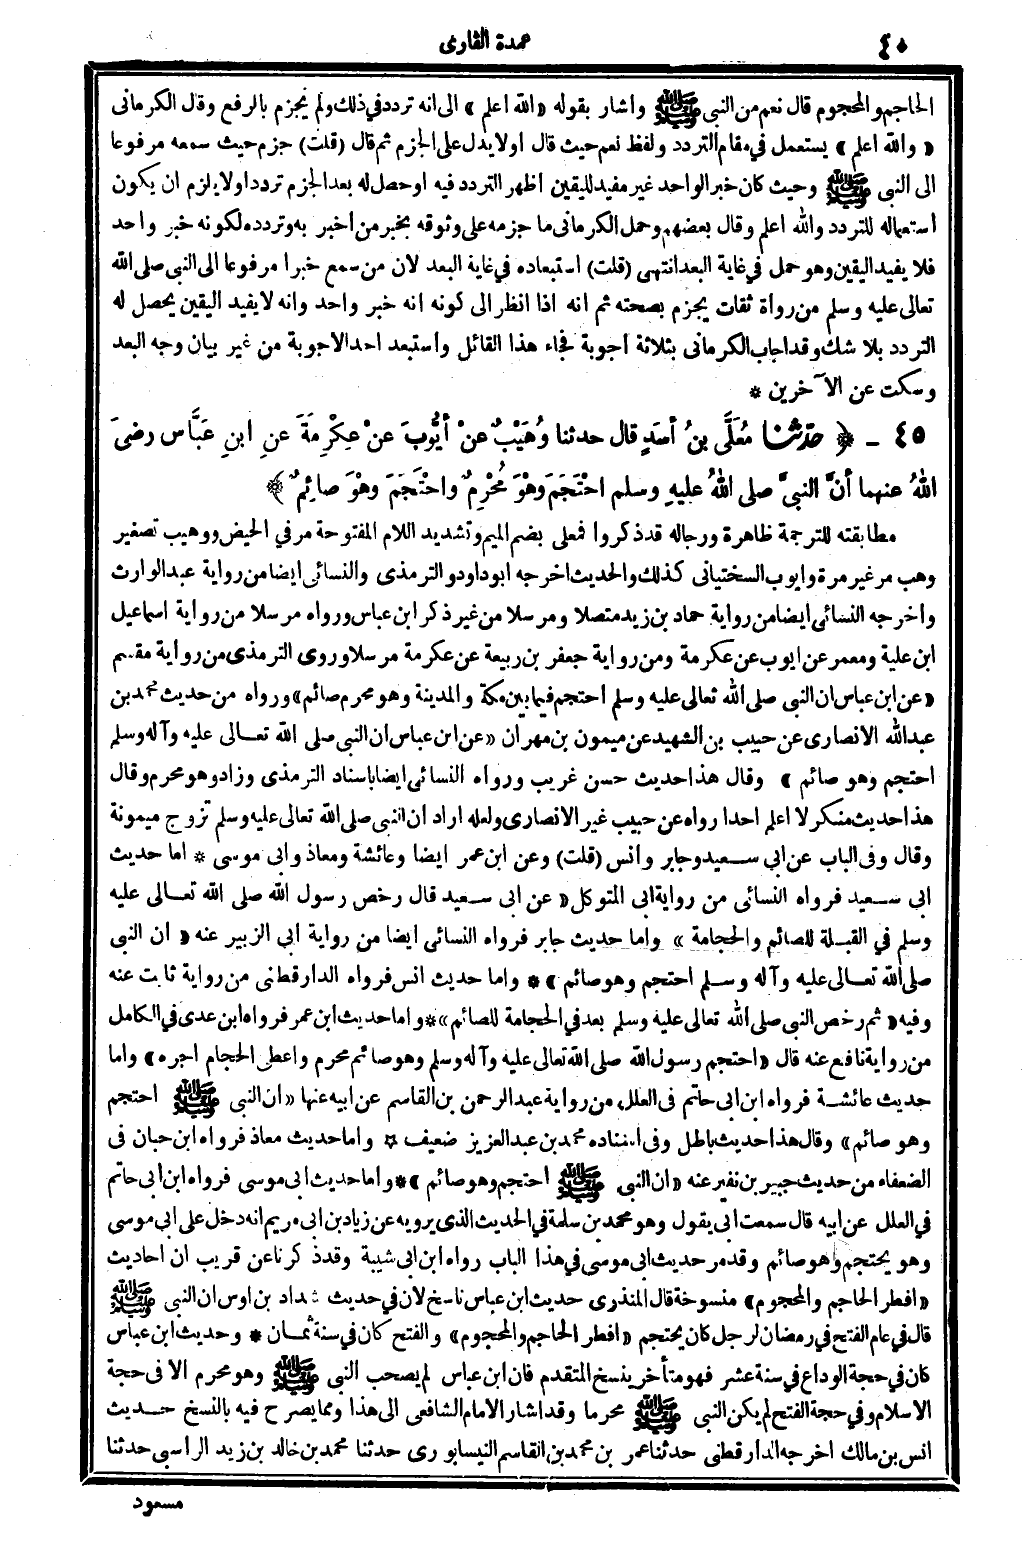 ٤٠
عمدة القارى
الحاجم والمحجوم قال نعم من النبى ﷺ واشار بقوله «الله اعلم» الى انه تردد فى ذلك ولم يجزم بالرفع وقال الكرمانى
«والله اعلم» يستعمل في مقام التردد ولفظ نعم حيث قال اولا يدل على الجزم ثم قال (قلت) جزم حيث سمعه مرفوعا
الى النبى ﷺ وحيث كان خبر الواحد غير مفيد لليقين اظهر التردد فيه او حصل له بعد الجزم تردد اولا يلزم ان يكون
استعماله للتردد والله اعلم وقال بعضهم وحمل الكرمانى ما جزمه على وثوقه بخبر من أخبر به وتردده لكونه خبر واحد
فلا يفيد اليقين وهو حمل في غاية البعد انتهى (قلت) استبعاده في غاية البعد لان من سمع خبرا مرفوعا الى النبى صلى الله
تعالى عليه وسلم من رواة ثقات يجزم بصحته ثم انه اذا انظر الى كونه انه خبر واحد وانه لا يفيد اليقين يحصل له
التردد بلا شك وقد اجاب الكرمانى بثلاثة أجوبة فجاء هذا القائل وأستبعد احد الاجوبة من غير بيان وجه البعد
وسكت عن الآخرين *
٤٥ - ﴿ حدثنا مُعَلَّى بنُ أسَدٍ قال حدثنا وُهَيْبٌ عنْ أيُّوبَ عنْ عِكْرِمَةَ عنِ ابنِ عَبَّاس رضىَ
اللهُ عنهما أنَّ النبيَّ صلى اللهُ عليهِ وسلم احْتَجَمَ وهْوَ مُحْرِمٌ واحْتَجَمَ وهْوَ صائِمٌ ﴾
مطابقته للترجمة ظاهرة ورجاله قد ذكروا فمعلى بضم الميم وتشديد اللام المفتوحة مر في الحيض ووهيب تصغير
وهب مر غير مرة وايوب السختيانى كذلك والحديث اخرجه ابوداود والترمذى والنسائى ايضا من رواية عبد الوارث
واخرجه النسائى ايضا من رواية حماد بن زيد متصلا ومرسلا من غير ذكر ابن عباس ورواه مرسلا من رواية اسماعيل
ابن علية ومعمر عن ايوب عن عكرمة ومن رواية جعفر بن ربيعة عن عكرمة مرسلا وروى الترمذى من رواية مقسم
«عن ابن عباس ان النبى صلى الله تعالى عليه وسلم أحتجم فيما بين مكة والمدينة وهو محرم صائم» ورواه من حديث محمد بن
عبدالله الانصارى عن حبيب بن الشهيد عن ميمون بن مهران «عن ابن عباس ان النبى صلى الله تعـالى عليه وآله وسلم
احتجم وهو صائم» وقال هذا حديث حسن غريب ورواه النسائى ايضا باسناد الترمذى وزاد وهو محرم وقال
هذا حديث منكر لا اعلم احدا رواه عن حبيب غير الانصارى ولعله اراد ان النبى صلى الله تعالى عليه وسلم تزوج ميمونة
وقال وفى الباب عن ابي سـعيد وجابر وانس (قلت) وعن ابن عمر ايضا وعائشة ومعاذ وابى موسى * اما حديث
ابى سـعيد فرواه النسائى من رواية ابى المتوكل «عن ابى سـعيد قال رخص رسول الله صلى الله تعـالى عليه
وسلم في القبـلة للصائم والحجامة» واما حديث جابر فرواه النسائى ايضا من رواية ابي الزبير عنه «ان النبى
صلى الله تعـالى عليه وآله وسـلم احتجم وهو صائم» * واما حديث انس فرواه الدارقطنى من رواية ثابت عنه
وفيه «ثم رخص النبى صلى الله تعالى عليه وسلم بعد في الحجامة للصائم» * واما حديث ابن عمر فرواه ابن عدى في الكامل
من رواية نافع عنه قال «احتجم رسول الله صلى الله تعالى عليه وآله وسلم وهو صائم محرم واعطى الحجام اجره» واما
حديث عائشـة فرواه ابن ابى حاتم فى العلل من رواية عبد الرحمن بن القاسم عن ابيه عنها «ان النبى ﷺ احتجم
وهو صائم» وقال هذا حديث باطل وفى اسناده محمد بن عبد العزيز ضعيف * واما حديث معاذ فرواه ابن حبان فى
الضعفاء من حديث جبير بن نفير عنه «ان النبى ﷺ احتجم وهو صائم» * واما حديث ابى موسى فرواه ابن ابى حاتم
في العلل عن ابيه قال سمعت ابى يقول وهو محمد بن سلمة في الحديث الذى يرويه عن زياد بن ابى مريم انه دخل على ابى موسى
وهو يحتجم وهو صائم وقد مر حديث ابى موسى في هذا الباب رواه ابن ابى شيبة وقد ذكرنا عن قريب ان احاديث
«افطر الحاجم والمحجوم» منسوخة قال المنذرى حديث ابن عباس ناسخ لان في حديث شداد بن اوس ان النبى ﷺ
قال في عام الفتح في رمضان لرجل كان يحتجم «افطر الحاجم والمحجوم» والفتح كان في سنة ثمـان * وحديث ابن عباس
كان في حجة الوداع في سنة عشر فهو متأخر ينسخ المتقدم فان ابن عباس لم يصحب النبى ﷺ وهو محرم الا فى حجة
الاسلام وفي حجة الفتح لم يكن النبى ﷺ محرما وقد اشار الامام الشافعى الى هذا ومما يصرح فيه بالنسخ حـديث
انس بن مالك اخرجه الدارقطنى حدثنا عمر بن محمد بن القاسم النيسابورى حدثنا محمد بن خالد بن زيد الراسبى حدثنا
مسعود